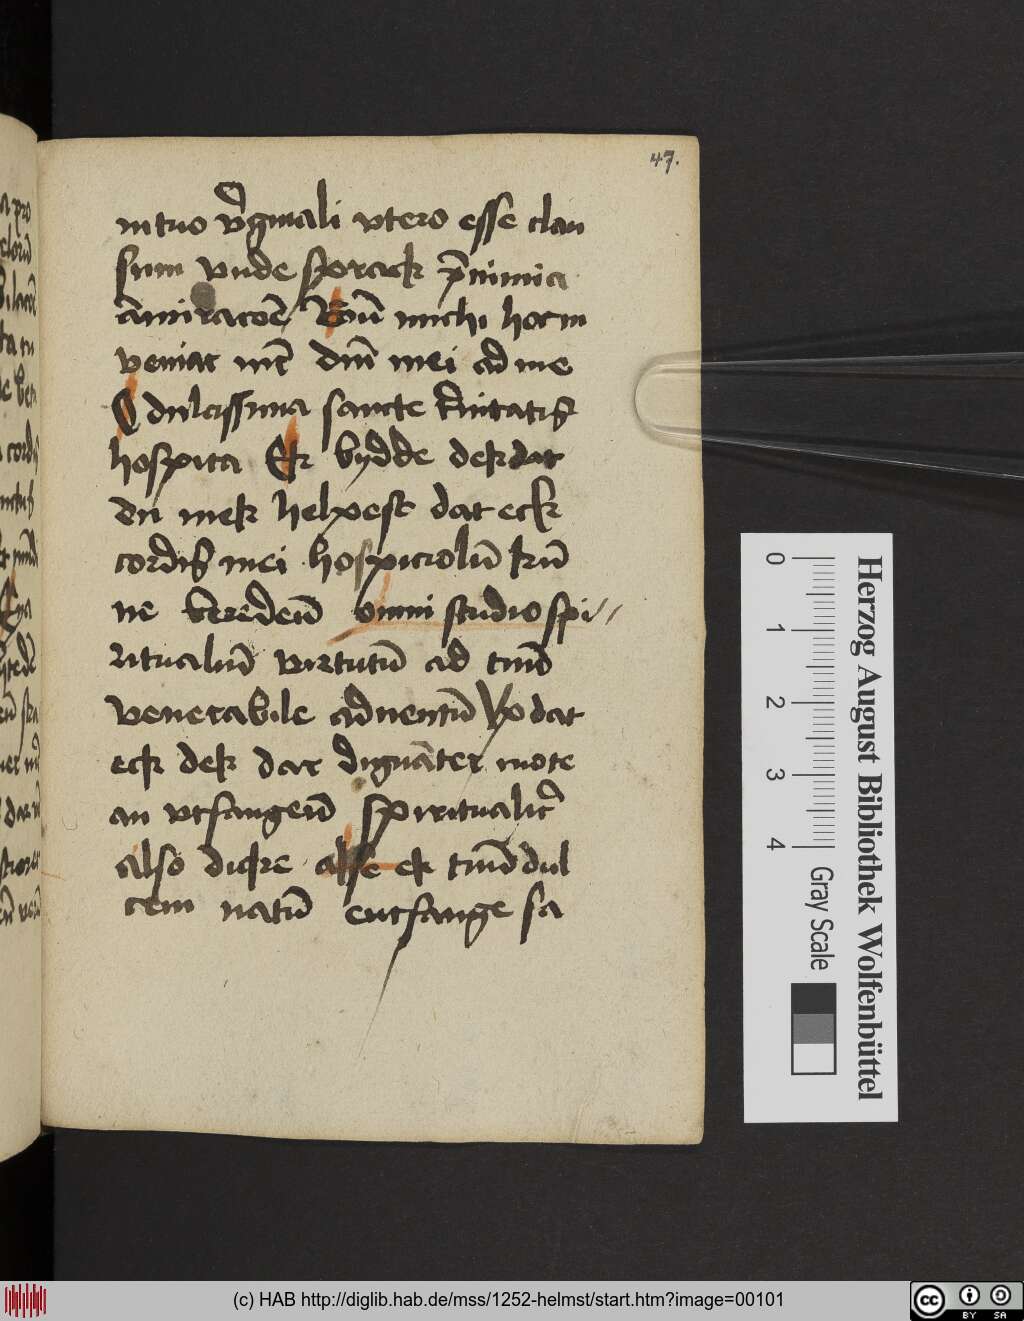 47.
in tuo v̄ginali vtero esse clau
sum vnde sprack p̄ nimia
āmiracoē Vn̄ michi hoc in
veniat mt̄ dn̄i mei ad me
O dulcissima sancte t̄nitatis
hospita Ek bydde dek dat
du mek helpest dat eck
cordis mei hospiciolū kū
ne beredeū omni studio spi //
ritualiū virtutū ad tuū
venerabile aduentū Vp dat
eck dek dar dignāter mote
an vtfangeū spiritualit̄
also dicke alse ek tuū dul
cem natū entfange sa
Herzog August Bibliothek Wolfenbüttel
0 1 2 3 4
Gray Scale
(c) HAB http://diglib.hab.de/mss/1252-helmst/start.htm?image=00101
cc BY SA